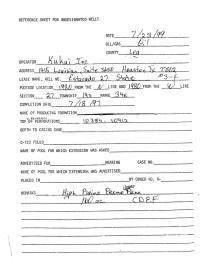 REFERENCE SHEET FOR UNDESIGNATED WELLS
DATE 7/23/99
OIL/GAS Oil
COUNTY Lea
OPERATOR Kukui Inc
ADDRESS 1415 Louisiana, Suite 3650 Houston Tx 77002
LEASE NAME, WELL NO. Colorado 27 State #3-F
FOOTAGE LOCATION 1980 FROM THE N LINE AND 1980 FROM THE W LINE
SECTION 27 TOWNSHIP 14s RANGE 34e
COMPLETION DATE 7/18/97
NAME OF PRODUCING FORMATION
TOP OF PERFORATIONS 10384 - 10412
DEPTH TO CASING SHOE
C-123 FILED
NAME OF POOL FOR WHICH EXTENSION WAS ASKED
ADVERTISED FOR HEARING CASE NO.
NAME OF POOL FOR WHICH EXTENSION WAS ADVERTISED
PLACED IN BY ORDER NO. R-
REMARKS High Plains Permo Penn